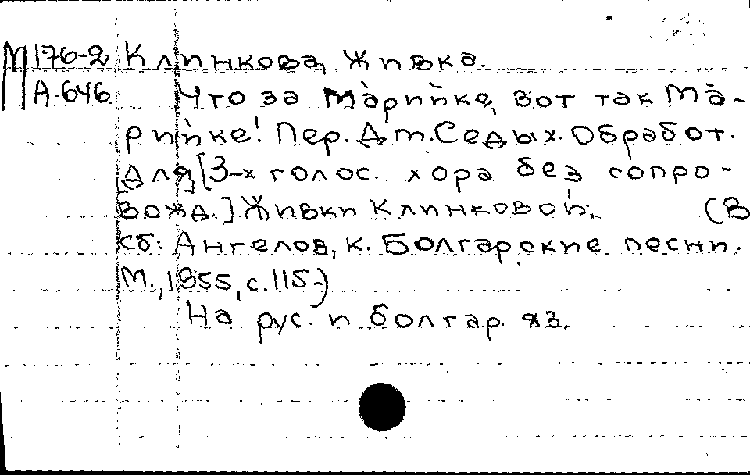 М176-2 Клинкова, Живка.
А-646 Что за Марийке, вот так Ма-
рийке! Пер. Дм. Седых. Обработ.
для [3-х голос. хора без сопро-
вожд.] Живки Клинковой. (В
сб: Ангелов, К. Болгарские песни.
М., 1955, с. 115.)
На рус. и болгар. яз.